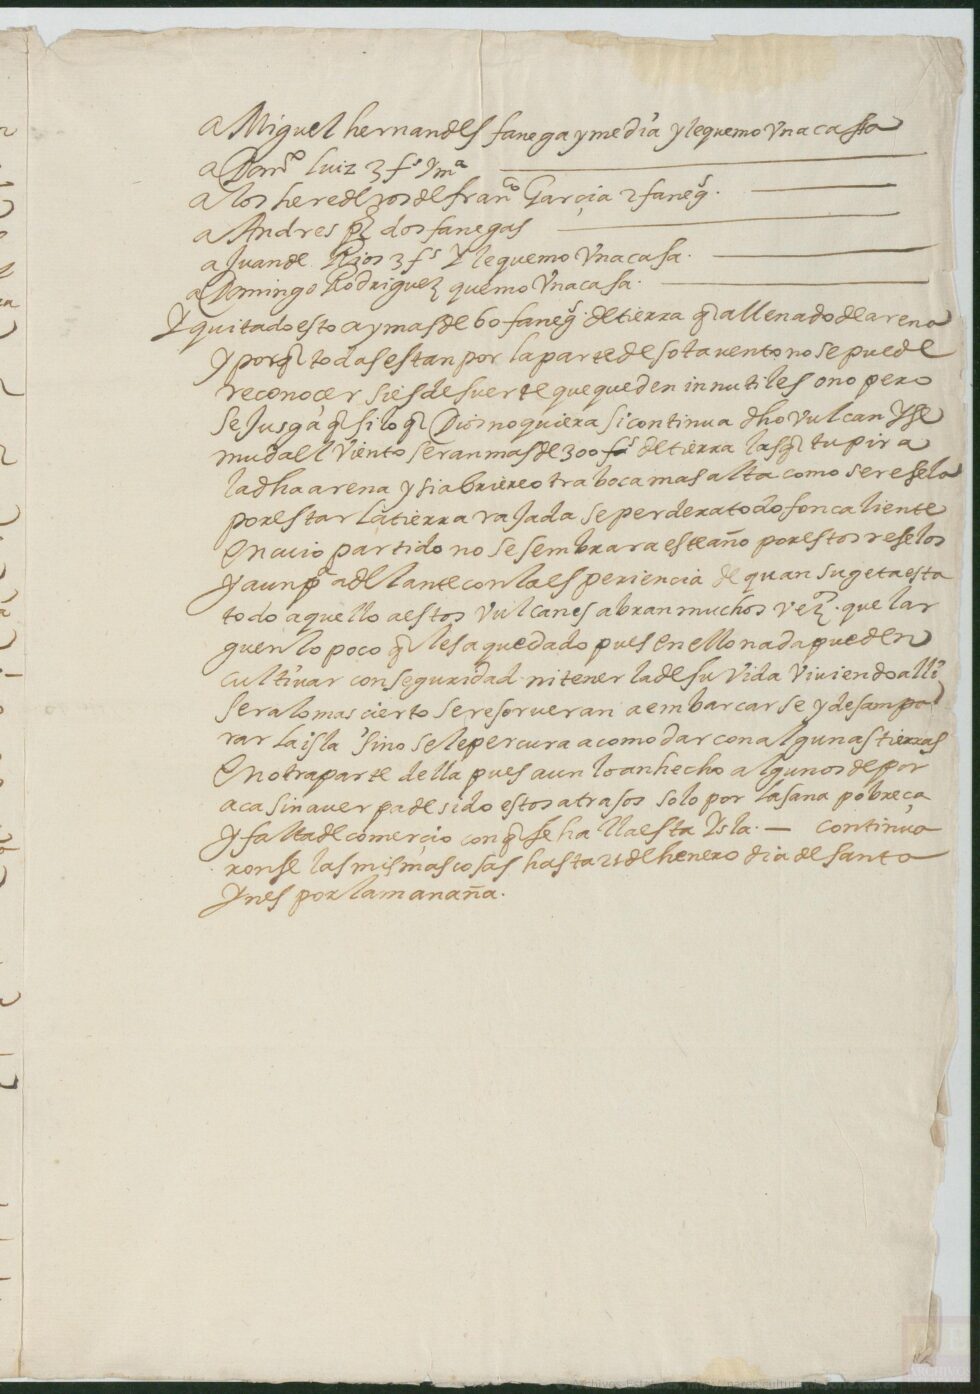 a Miguel hernandes fanega y media y le quemo Una casa
a Domº Luiz 3 fˢ y mª
a los herederos de franᶜᵒ Garçia 2 fanegˢ.
a Andres pz dos fanegas
a Juan de Rios 3 fˢ Y le quemo Una casa.
a Domingo Rodriguez quemo Una casa.
Y quitado esto ay mas de 60 fanegˢ. de tierra q allenado de arena
y porq todas estan por la parte de sotavento no se puede
reconocer si es de suerte que queden innutiles o no pero
se Jusga q si lo q Dios no quiera si continua dho Vulcan Y se
muda el Viento seran mas de 300 fˢ de tierra las q tupira
la dha arena y si abriere otra boca mas alta como se resela
por estar la tierra rajada se perdera todo foncaliente
en cuio partido no se sembrara este año por estos reselos
y aunq adelante con la esperiencia de quan sugeta esta
todo aquello a estos Vulcanes abran muchos Vez. que lar
guen lo poco q les a quedado pues en ello nada pueden
cultivar con seguridad ni tenerla de su Vida Viviendo alli
sera lo mas cierto se resorveran a embarcarse y desampa
rar la isla sino se le percura acomodar con algunas tierras
en otra parte della pues aun lo an hecho algunos de por
aca sin aver padesido estos atrasos solo por la sana pobreça
y falta de comerçio con q se halla esta Ysla. — continua
ronse las mismas cosas hasta 21 de henero dia de Santa
Ynes por la manaña.